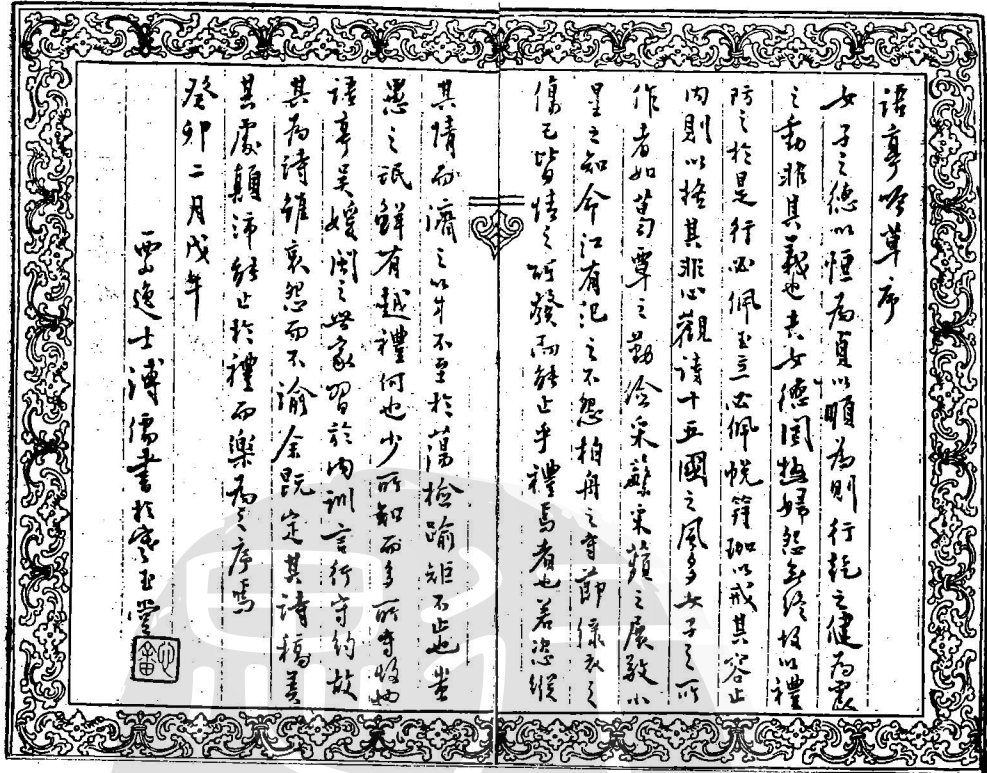 語亭吟草序
女子之德以恒為貞以順為則行乾之健為
之動非其義也夫女德罔極婦怨無終故以禮
防之於是行必佩玉立必佩帨符珈以戒其容止
內則以格其非心觀詩十五國之風多女子之所
作者如葛覃之勤儉采蘩采蘋之展敬小
星之知命江有汜之不怨柏舟之守節綠衣之
傷己皆情之所發而能止乎禮焉者也若恣縱
其情而濟之以才不至於蕩檢踰矩不止也蚩
愚之氓鮮有越禮何也少所知而多所守故也
語亭吳媛閩之世家習於內訓言行守約故
其為詩雖哀怨而不渝余既定其詩稿善
其處顛沛能止於禮而樂為之序焉
癸卯二月戊午
西山逸士溥儒書於寒玉堂
心畬